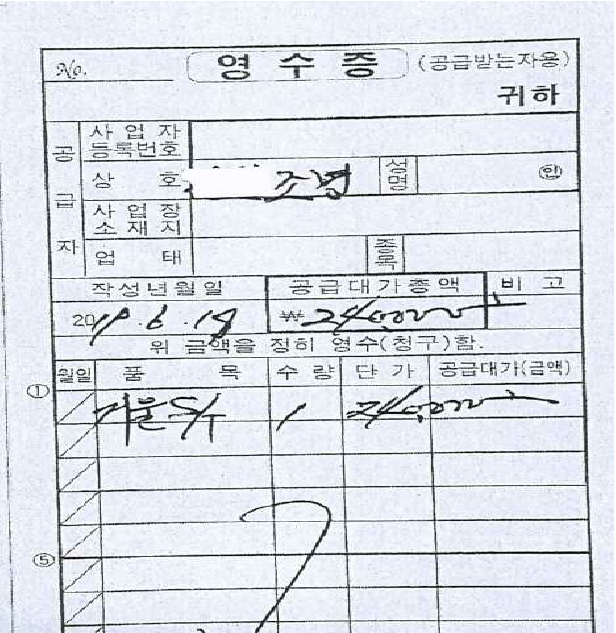 No. 영수증 (공급받는자용)
귀하
공급자
사업자등록번호
상 호 조명 성명 ㊞
사업장소재지
업 태 종목
작성년월일 공급대가총액 비 고
2019. 6. 19 ₩240,000
위 금액을 정히 영수(청구)함.
월일 품 목 수 량 단 가 공급대가(금액)
① 거울S/ 1 240,000
⑤